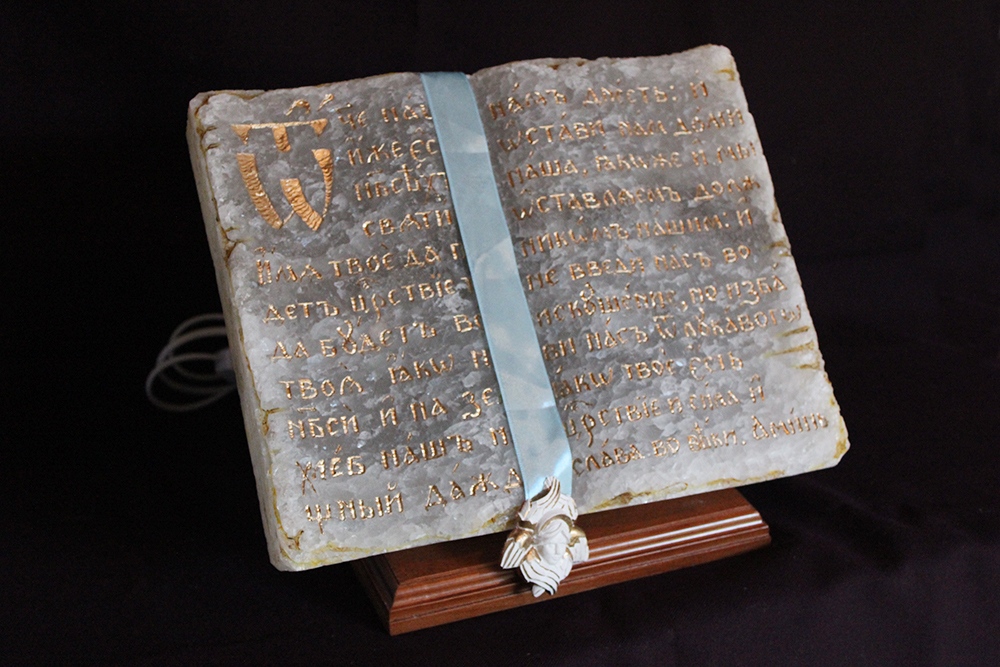 Ѿче на
и́же ес
нб҃сѣхъ
свѧти
И́мѧ твоѐ да п
детъ цр҃ствїе
да бꙋ́детъ во
твоѧ̀ ꙗ́кѡ н
нб҃сѝ и҆ на зе
хлѣ́б на́шъ н
щный да́жд
на́мъ днесть: И҆
ѡ҆ста́ви нам до́лги
на́ша, ꙗ́кѡже и҆ мы
ѡ҆ставлѧ́емъ долж
никѡ́мъ на́шим: И҆
не введѝ насъ во
искꙋше́нїе, но изба́
ви на́съ ѿ лꙋка́ваго
ꙗ́кѡ твоѐ е́сть
цр҃ствїе и си́ла и҆
сла́ва во вѣ́ки. Ами́нь